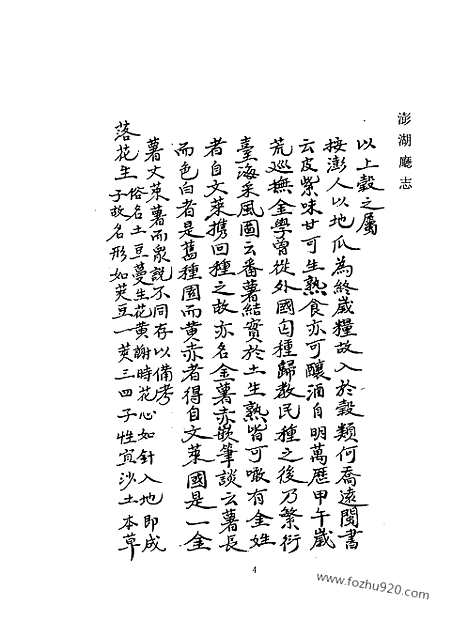 澎湖廳志
以上穀之屬
按澎人以地瓜為終歲糧故入於穀類何喬遠閩書
云皮紫味甘可生熟食亦可釀酒自明萬歷甲午歲
荒巡撫金學曾從外國匄種歸教民種之後乃繁衍
臺海采風圖云番薯結實於土生熟皆可噉有金姓
者自文萊攜回種之故亦名金薯赤嵌筆談云薯長
而色白者是舊種圓而黃赤者得自文萊國是一金
薯文萊薯而眾說不同存以備考
落花生
俗名土豆蔓生花黃謝時花心如針入地即成
子故名形如莢豆一莢三四子性宜沙土本草
4
www.fozhu920.com